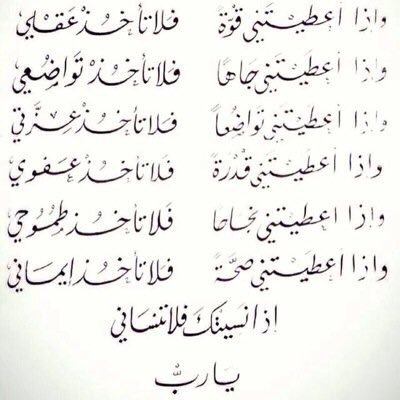 وإذا أعطيتني قوّةً فلا تأخذ عقلي
وإذا أعطيتني جاهاً فلا تأخذْ تواضعي
وإذا أعطيتني تواضعاً فلا تأخذ عزّتي
وإذا أعطيتني قدرةً فلا تأخذ عفوي
وإذا أعطيتني نجاحا فلا تأخذ طموحي
وإذا أعطيتني صحّةً فلا تأخذ إيماني
إذا نسيتك فلا تنساني
يا ربّ